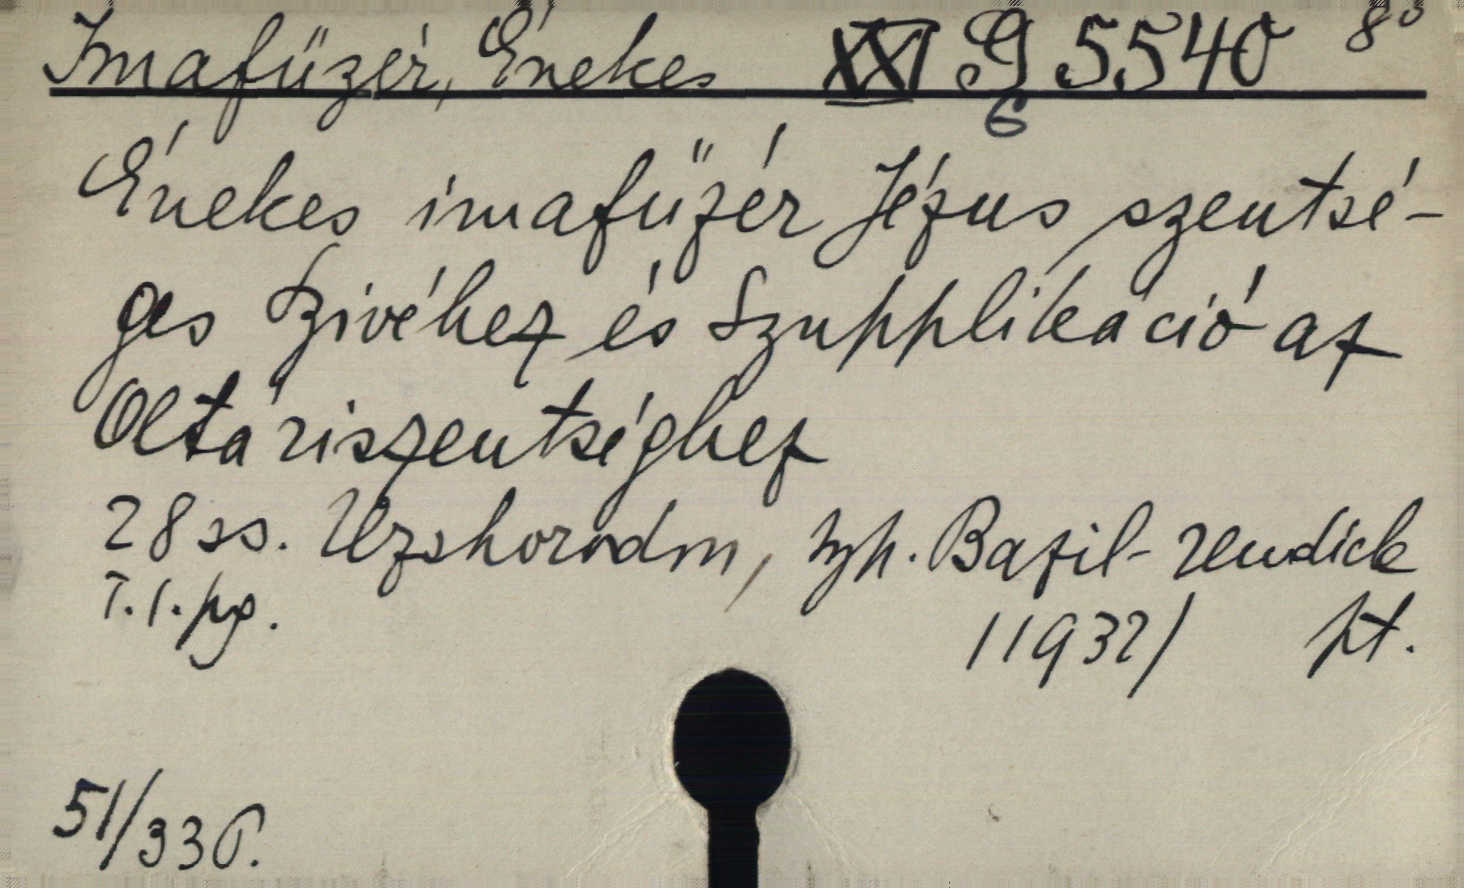 Imafüzér, Énekes XXI G 5540 8°
6
Énekes imafüzér Jézus szentsé-
ges Szivéhez és Szupplikáció az
Oltáriszentséghez
28 ss. Uzshorodm, Bazil-rendiek
T. 1. pg. /1932/ pt.
51/336.